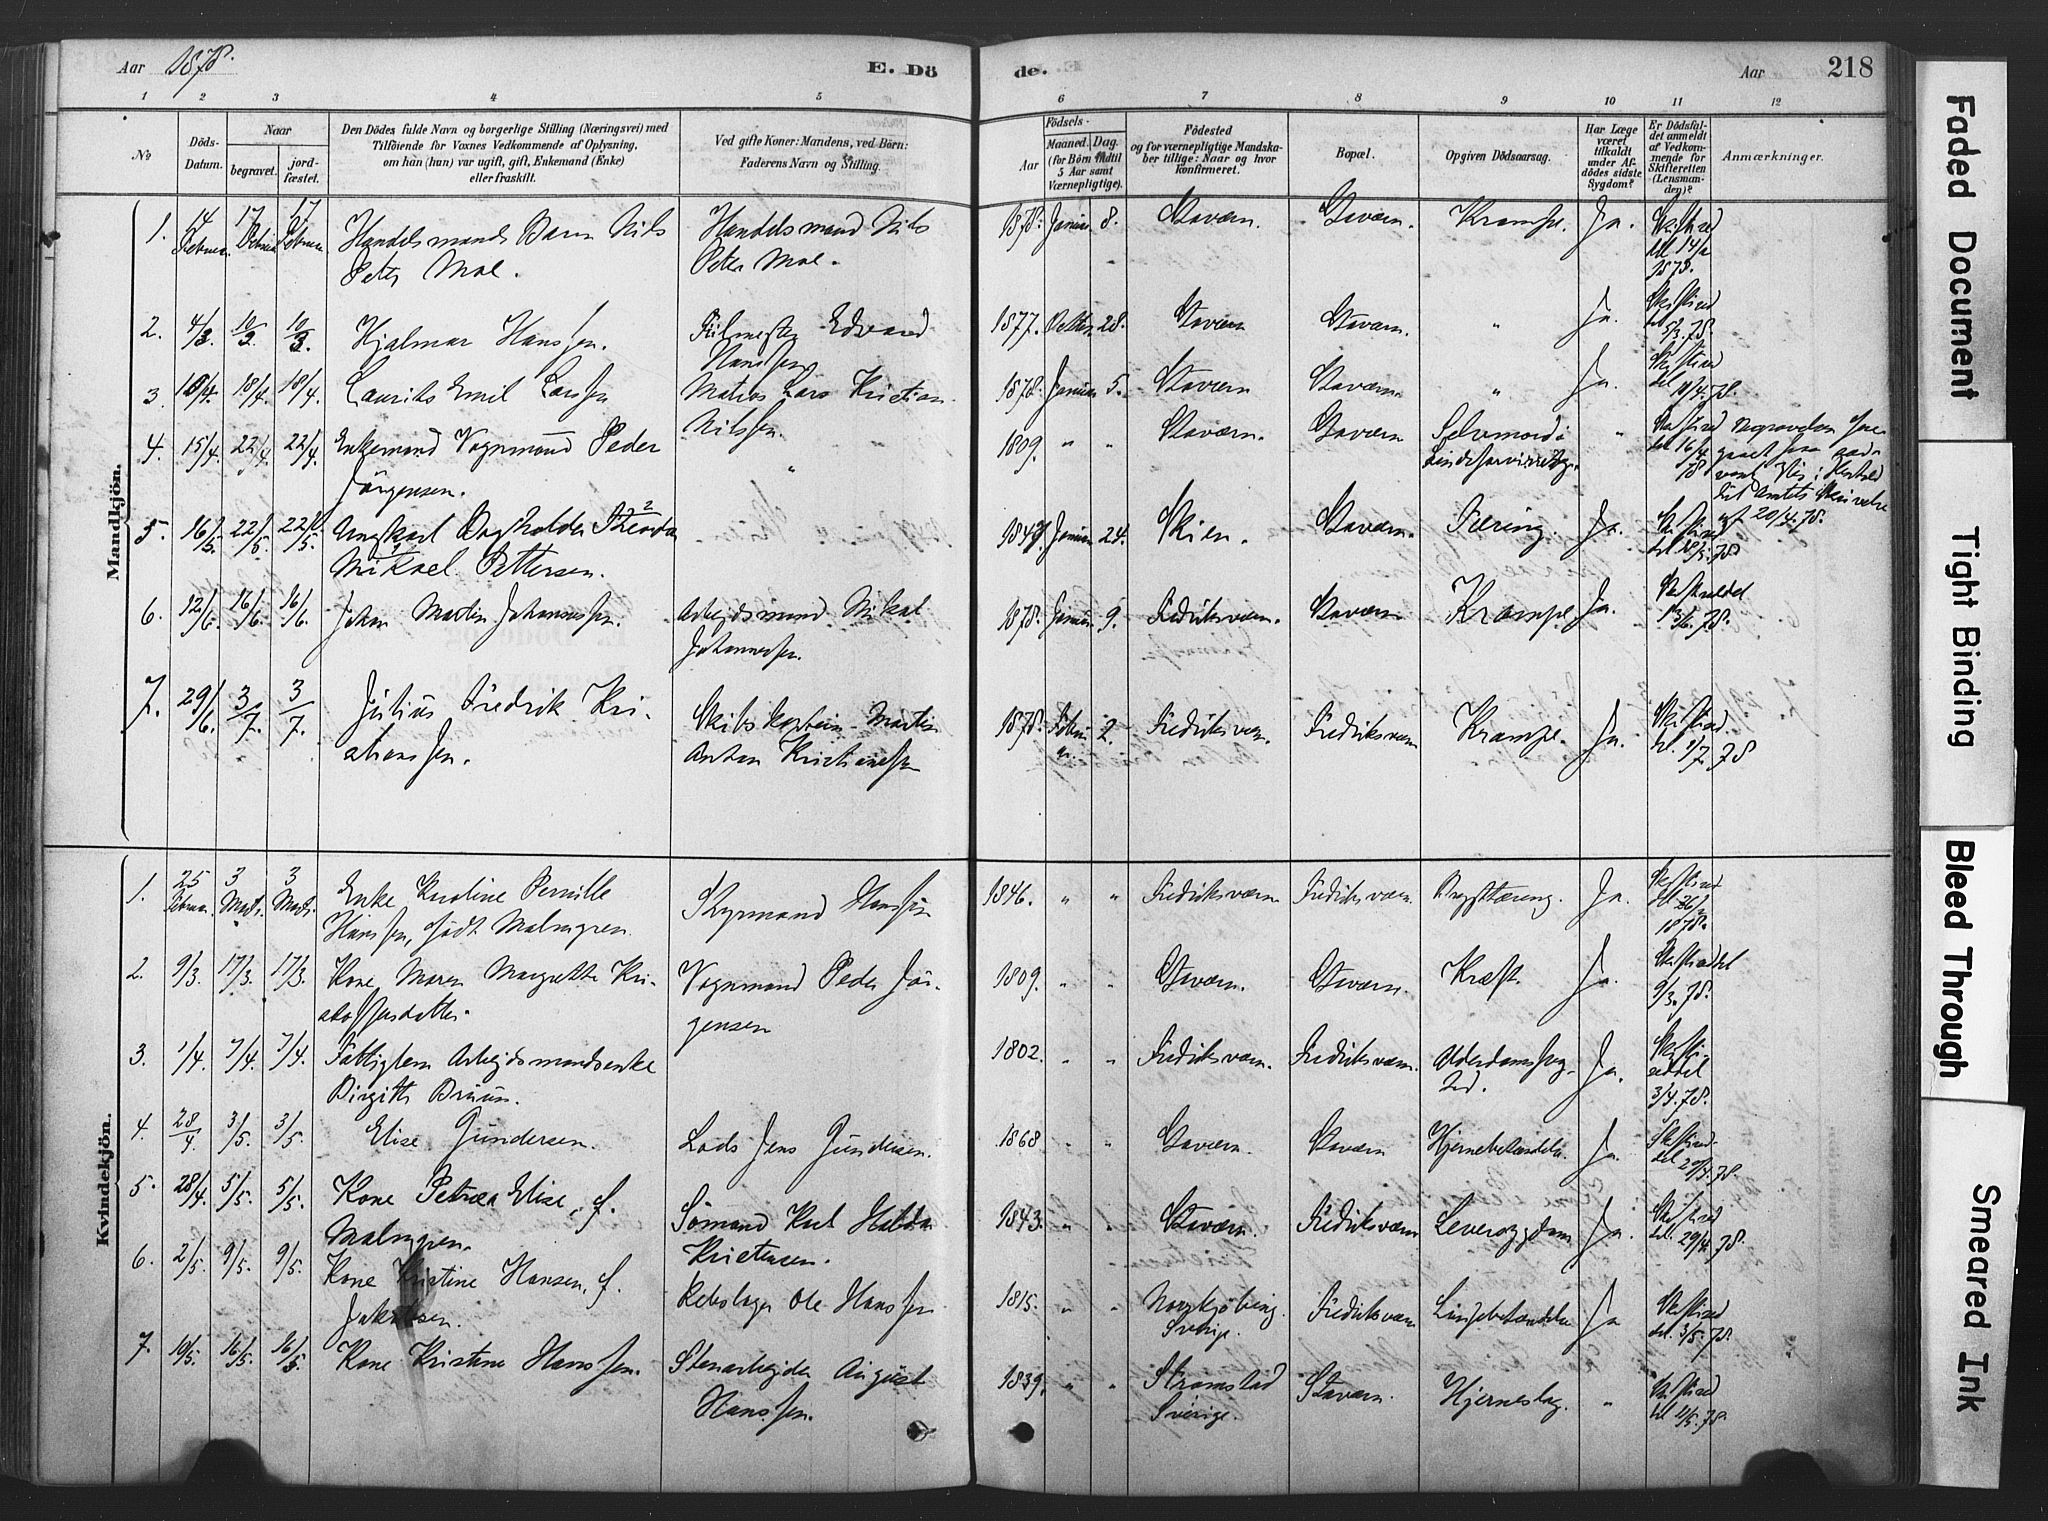 Aar 1878. E. Dö
de. Aar 218
1 2 3 4 5 6 7 8 9 10 11 12
№
Döds-Datum.
Naar
begravet.
jord-fæstet.
Den Dödes fulde Navn og borgerlige Stilling (Næringsvei) med
Tilföiende for Voxnes Vedkommende af Oplysning,
om han (hun) var ugift, gift, Enkemand (Enke)
eller fraskilt.
Ved gifte Koner: Mandens, ved Börn:
Faderens Navn og Stilling.
Födsels-
Aar
Maaned. Dag.
(for Börn indtil
5 Aar samt
Værnepligtige).
Födested
og for værnepligtige Mandska-
ber tillige: Naar og hvor
konfirmeret.
Bopæl.
Opgiven Dödsaarsag.
Har Læge
været
tilkaldt
under Af-
dödes sidste
Sygdom?
Er Dödsfal-
det anmeldt
af Vedkom-
mende for
Skifteretten
(Lensman-
den)?
Anmærkninger.
Mandkjön.
1. 14 Februar. 17 Februar 17 Februar. Handelsmands Barn Nils
Peter Moe.
Handelsmand Nils
Peter Moe.
1878. Januar 8. Stavern Stavern. Krampe. Ja. Skifteseddel 14/2 1878.
2. 4/3. 10/3. 10/3. Hjalmar Hanssen. Edvard
Hanssen
1877. 28. Stavern Stavern. " Ja. 5/3. 78.
3. 18/4. 18/4. Laurits Emil Larssen
Matros Lars Kristian
Nilssen.
1878. Januar 5. Stavern Stavern. " Ja.
4. 15/4. 22/4. 22/4. Enkemand Vognmand Peder
Jörgensen. "
1809. " " Stavern. Stavern Selvmord i
Sindsforvirring. " 16/4 78
20/4. 78.
5. 16/5. 22/5. 22/5. Ungkarl Bogholder Theodor
Mikael Pettersen.
Januar 24. Skien. Stavern. Tæring. Ja.
6. 12/6. 16/6. 16/6. Johan Martin Johannessen.
Arbejdsmand Mikal
Johannessen.
1878. Januar 9. Fredriksværn. Stavern Krampe Ja. 13/6. 78.
7. 29/6. 3/7. 3/7. Julius Fredrik Kri-
stianssen.
Skibskaptein Martin
Anton Kristianssen
1878. Februar 2. Fredriksværn. Fredriksværn Krampe. Ja. 1/7. 78
Kvindekjön.
1. 25 Februar. 3 Marts. 3 Marts. Enke Karoline Pernille
Hanssen, födt Malmgren.
Styrmand Hanssen
1846. " " Fredriksværn Fredriksværn. Brysttæring. Ja. Skifteseddel 26/2 1878.
2. 9/3 17/3. 17/3. Kone Maren Margrethe Kri-
stoffersdatter.
Vognmand Peder Jör-
gensen
1809. " " Stavern. Stavern. Kræft. Ja. 9/3. 78.
3. 1/4 7/4. 7/4. Fattiglem Arbejdsmandsenke
Birgitte Bruun.
1802. " " Fredriksværn. Fredriksværn. Alderdomssvag-
hed. Ja. 3/4. 78.
4. 28/4 3/5. 3/5. Elise Gundersen. Lods Jens Gundersen.
1868 " " Stavern. Stavern Hjernebetændelse. Ja.
5. 28/4. 5/5. 5/5. Kone Petrea Elise, f.
Malmgren.
Sömand Karl
Kristensen.
1843. " " Stavern. Fredriksværn Leversygdom Ja. 29/4. 78.
6. 2/5. 9/5. 9/5. Kone Kristine Hansen, f.
Jakobsen.
Rebslager Ole Hanssen
1815. " "
Sverige. Fredriksværn Lungebetændelse Ja 3/5. 78.
7. 10/5. 16/5. 16/5. Kone Kristine Hanssen. Stenarbejder August
Hanssen.
1839. " " Strömstad
Sverige. Stavern. Hjerneslag. " 11/5. 78.
Faded Document
Tight Binding
Bleed Through
Smeared Ink